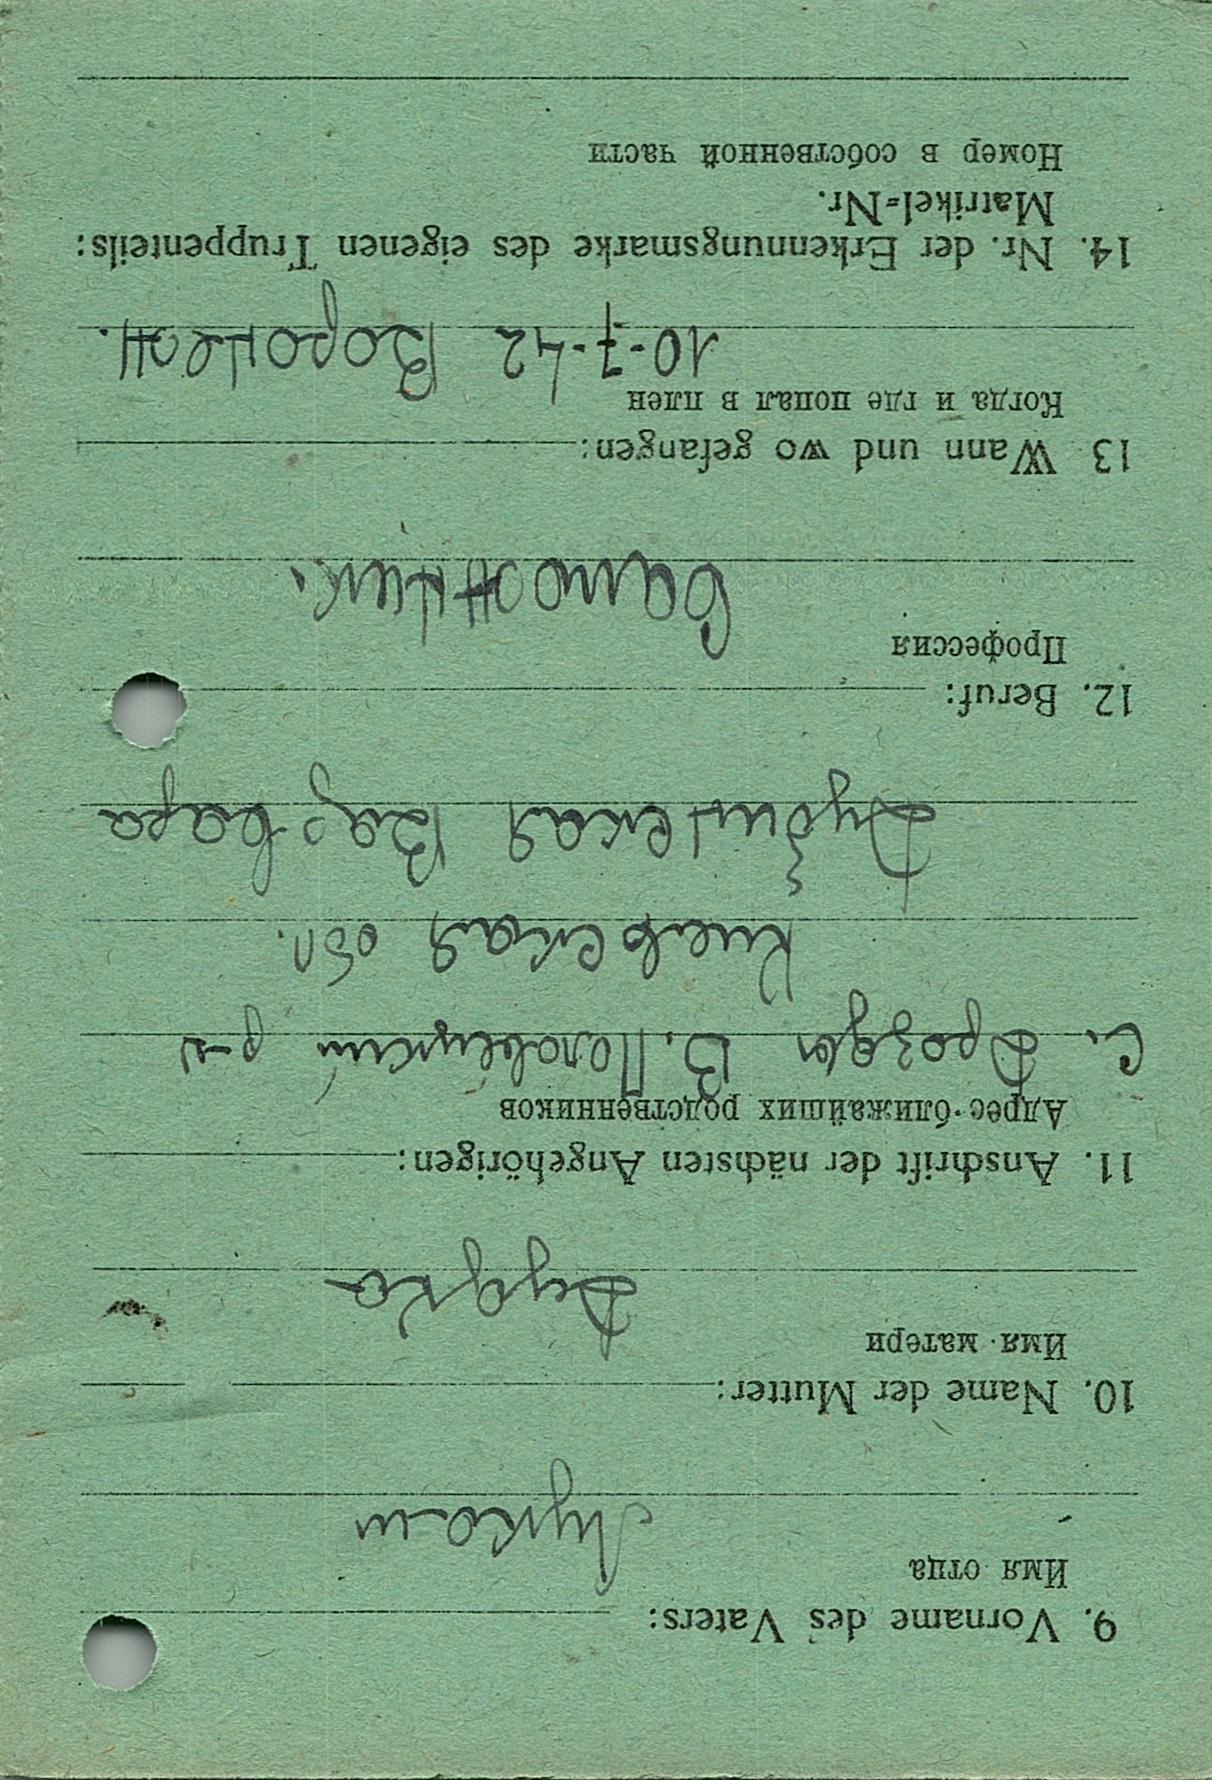 9. Vorname des Vaters:
Имя отца
Лукаш
10. Name der Mutter:
Имя матери
11. Anschrift der nächsten Angehörigen:
Адрес ближайших родственников
с. Дрозды В. Половецкий р-н
Киевская обл.
Дубинская Варвара
12. Beruf:
Профессия
Сапожник.
13 Wann und wo gefangen:
Когда и где попал в плен
10-7-42 Воронеж.
14. Nr. der Erkennungsmarke des eigenen Truppenteils:
Matrikel-Nr.
Номер в собственной части